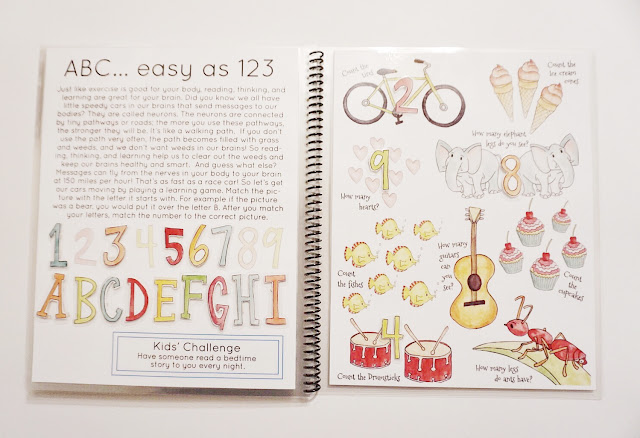 ABC... easy as 123
Just like exercise is good for your body, reading, thinking, and
learning are great for your brain. Did you know we all have
little speedy cars in our brains that send messages to our
bodies? They are called neurons. The neurons are connected
by tiny pathways or roads; the more you use these pathways,
the stronger they will be. It's like a walking path. If you don't
use the path very often, the path becomes filled with grass
and weeds, and we don't want weeds in our brains! So read-
ing, thinking, and learning help us to clear out the weeds and
keep our brains healthy and smart. And guess what else?
Messages can fly from the nerves in your body to your brain
at 150 miles per hour! That's as fast as a race car! So let's get
our cars moving by playing a learning game. Match the pic-
ture with the letter it starts with. For example if the picture
was a bear, you would put it over the letter B. After you match
your letters, match the number to the correct picture.
123456789
ABCDEFGHI
Kids' Challenge
Have someone read a bedtime
story to you every night.
Count the
tires
2
Count the
ice cream
cones
9
How many
hearts?
How many elephant
legs do you see?
8
Count
the fishes
How many
guitars
can
you
see?
Count
the
cupcakes
4
Count the Drumsticks
How many legs
do ants have?